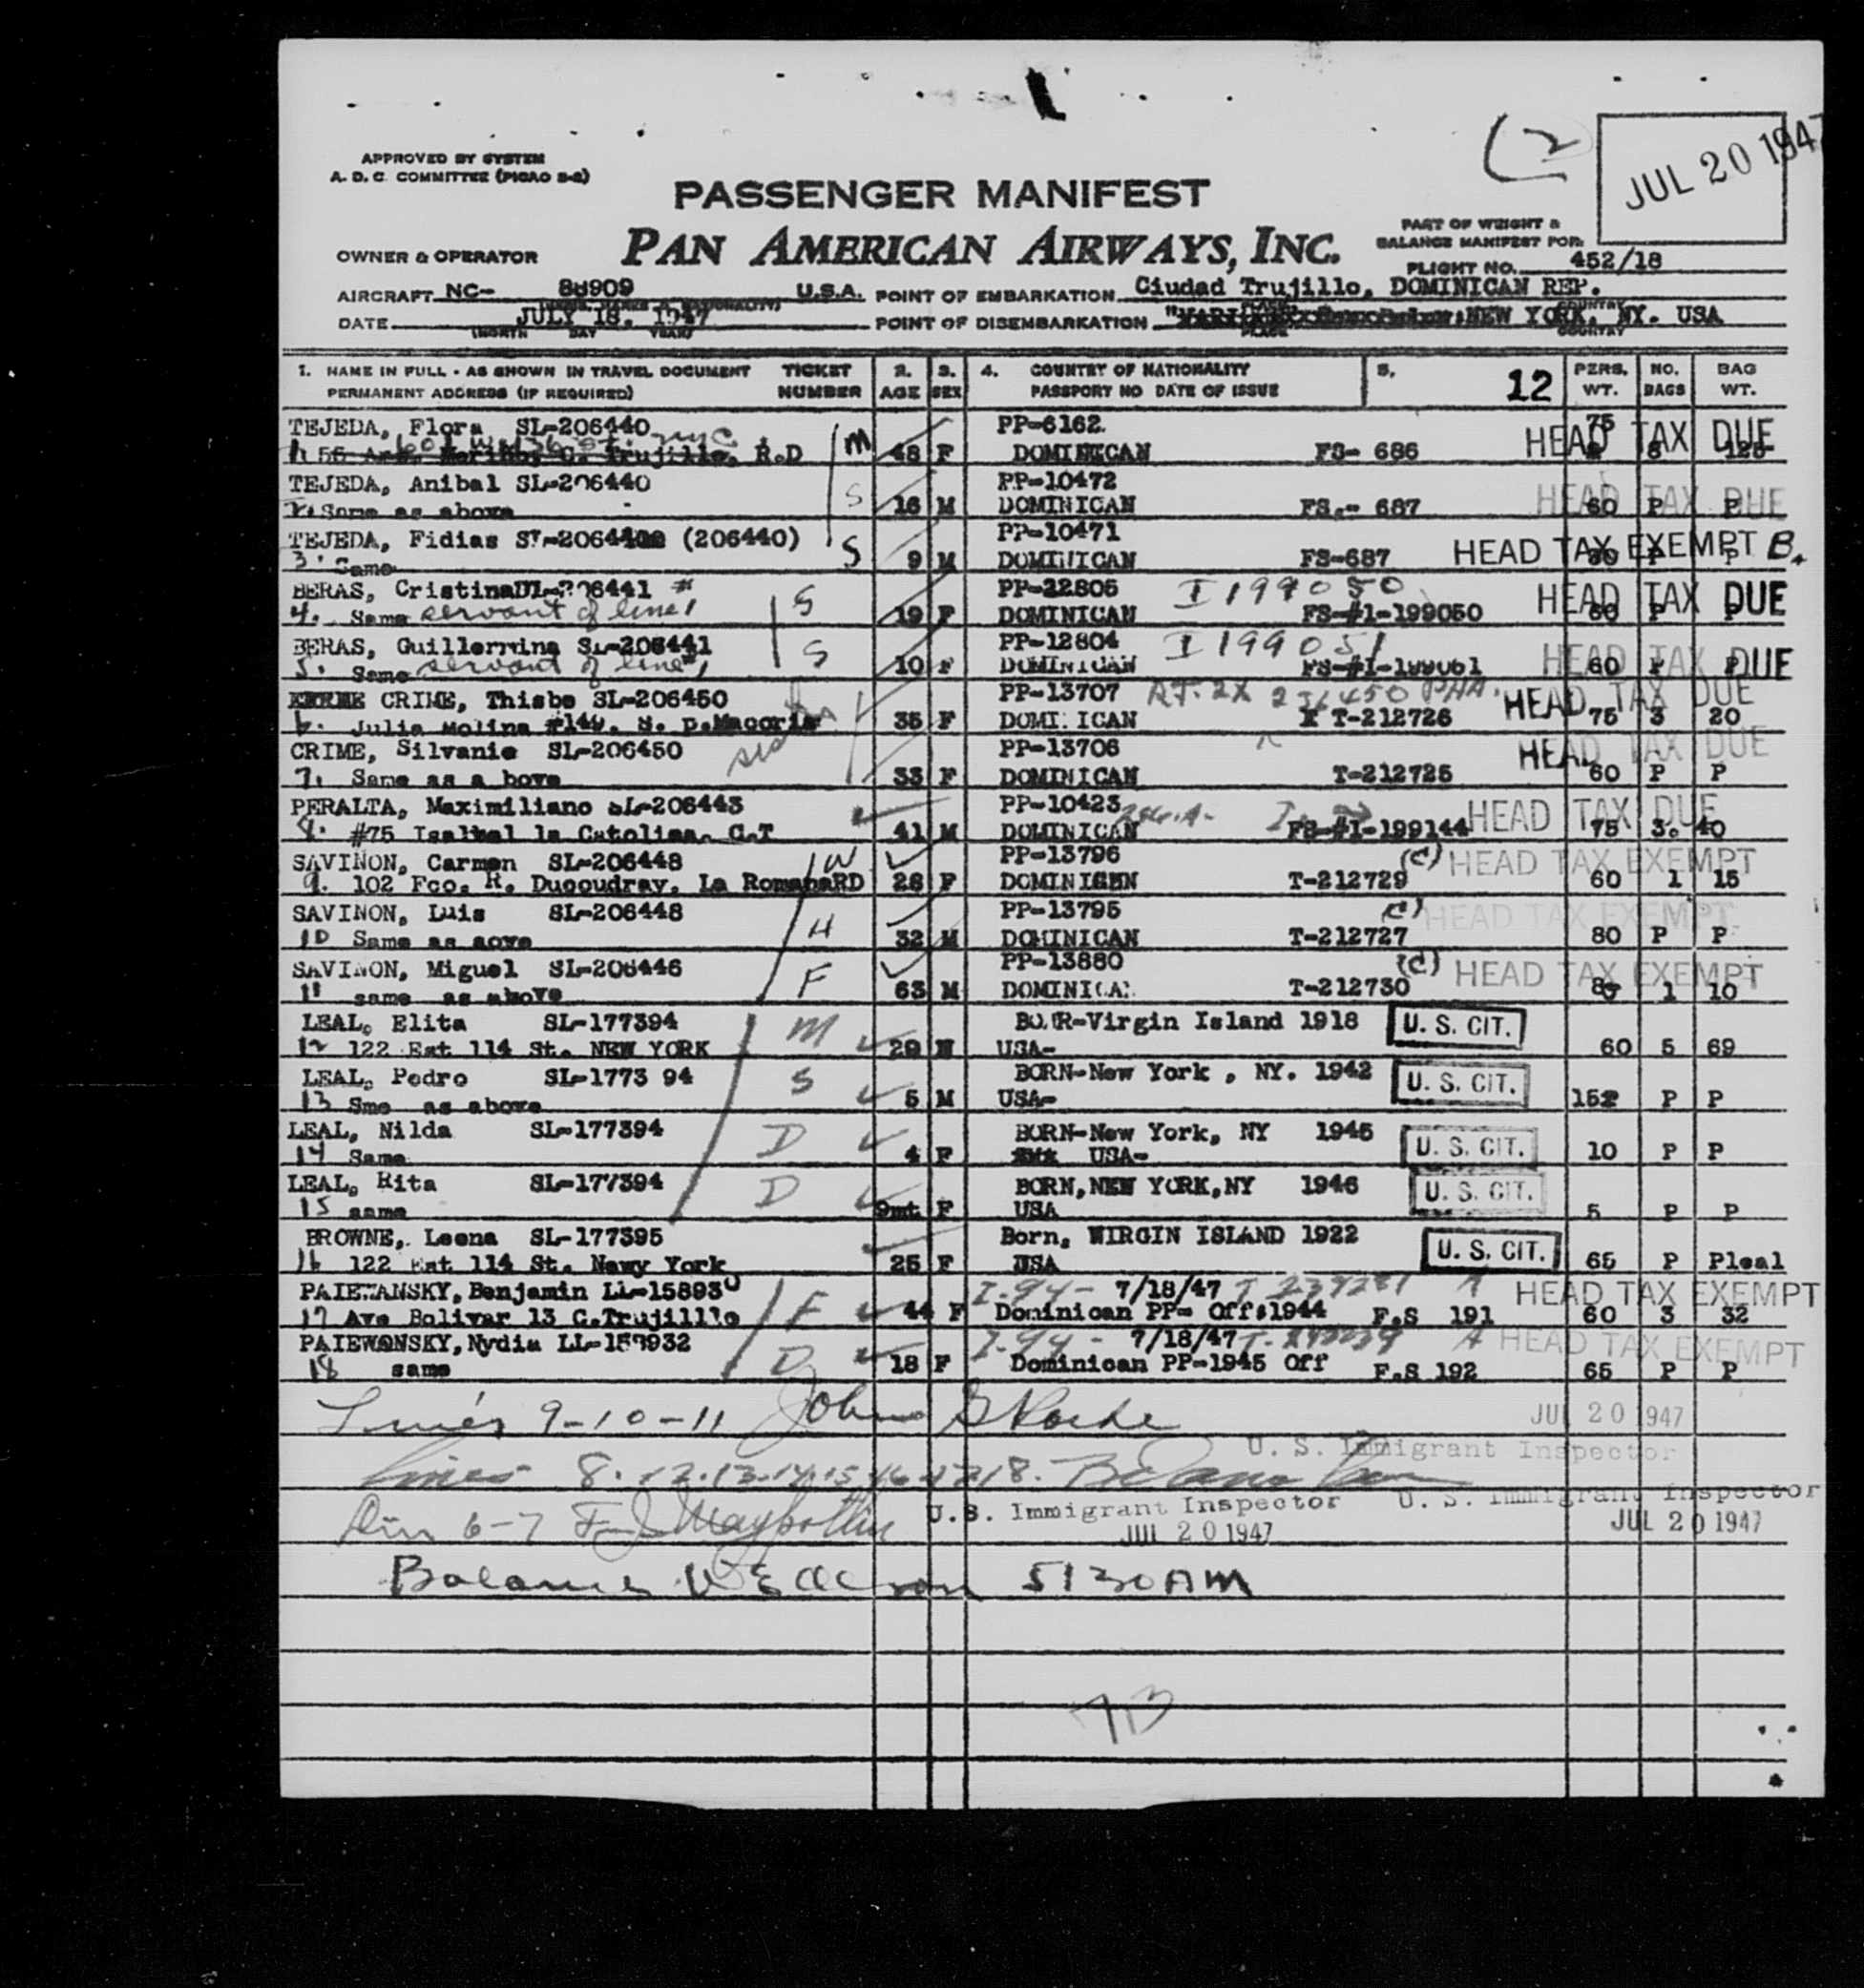 (2
JUL 20 1947
APPROVED BY SYSTEM
A. D. C. COMMITTEE (PICAO S-2)
PASSENGER MANIFEST
PAN AMERICAN AIRWAYS, INC.
OWNER & OPERATOR
PART OF WEIGHT &
BALANCE MANIFEST FOR:
FLIGHT NO. 452/18
AIRCRAFT NC- 88909 U.S.A. POINT OF EMBARKATION Ciudad Trujillo, DOMINICAN REP.
DATE JULY 18, 1947 POINT OF DISEMBARKATION NEW YORK, NY. USA
(MONTH DAY YEAR) PLACE COUNTRY
1. NAME IN FULL - AS SHOWN IN TRAVEL DOCUMENT TICKET 2. 3. 4. COUNTRY OF NATIONALITY 5. 12 PERS. NO. BAG
PERMANENT ADDRESS (IF REQUIRED) NUMBER AGE SEX PASSPORT NO DATE OF ISSUE WT. BAGS WT.
TEJEDA, Flora SL-206440 PP-6162. 75 HEAD TAX DUE
1. C. Trujillo, R.D M 48 F DOMINICAN FS- 686
TEJEDA, Anibal SL-206440 PP-10472 HEAD TAX DUE
2. Same as above S 16 M DOMINICAN FS.- 687 60 P P
TEJEDA, Fidias (206440) PP-10471 HEAD TAX EXEMPT B.
3. Same S 9 M DOMINICAN FS-687
BERAS, Cristina PP-22805 I 199050 HEAD TAX DUE
4. Same servant of line 1 S 19 F DOMINICAN FS-#1-199050 60 P P
BERAS, Guillermina SL-206441 PP-12804 I 199051 HEAD TAX DUE
5. Same servant of line 1 S 10 F DOMINICAN 60 P P
CRIME, Thisbe SL-206450 PP-13707 HEAD TAX DUE
6. Julia Molina S. p.Macoris 35 F DOMI.ICAN T-212726 75 3 20
CRIME, Silvanie SL-206450 PP-13706 HEAD TAX DUE
7. Same as a bove 33 F DOMINICAN T-212725 60 P P
PERALTA, Maximiliano SL-206443 PP-10423 HEAD TAX DUE
8. #75 Isalbel la Catolica. C.T 41 M DOMINICAN FS-#I-199144 75 3. 40
SAVINON, Carmen SL-206448 W PP-13796 (C) HEAD TAX EXEMPT
9. 102 Fco. R. Ducoudray. La RomanaRD 28 F T-212729 60 1 15
SAVINON, Luis SL-206448 PP-13795 (C) HEAD TAX EXEMPT
10 Same as aove H 32 M DOMINICAN T-212727 80 P P
SAVINON, Miguel SL-206446 PP-13880 (C) HEAD TAX EXEMPT
11 same as above F 63 M DOMINICA. T-212730 1 10
LEAL, Elita SL-177394 M Virgin Island 1918 U. S. CIT.
12 122 Eat 114 St. NEW YORK 29 USA- 60 5 69
LEAL, Pedro SL-1773 94 S BORN-New York , NY. 1942 U. S. CIT.
13 Sme as above 5 M USA- P P
LEAL, Nilda SL-177394 D BORN-New York, NY 1945 U. S. CIT.
14 Same 4 F USA- 10 P P
LEAL, Rita SL-177394 D BORN,NEW YORK,NY 1946 U. S. CIT.
15 same 9mt F USA 5 P P
BROWNE,. Leena SL-177395 Born, WIRGIN ISLAND 1922 U. S. CIT.
16 122 Eat 114 St. Newy York 25 F USA 65 P Pleal
PAIEWANSKY, Benjamin LL-158930 I-94- 7/18/47 A HEAD TAX EXEMPT
17 Ave Bolivar 13 C.Trujilllo F 44 F Dominican PP- Off:1944 F.S 191 60 3 32
PAIEWONSKY, Nydia I-94- 7/18/47 A HEAD TAX EXEMPT
18 same D 18 F Dominican PP-1945 Off F.S 192 65 P P
Lines 9-10-11 John JUL 20 1947
U. S. Immigrant Inspector
Lines 8.12.13.14.15.16.17.18.
U.S. Immigrant Inspector U. S. Immigrant Inspector
Lin 6-7 JUL 20 1947 JUL 20 1947
Balance 5:30 AM
713